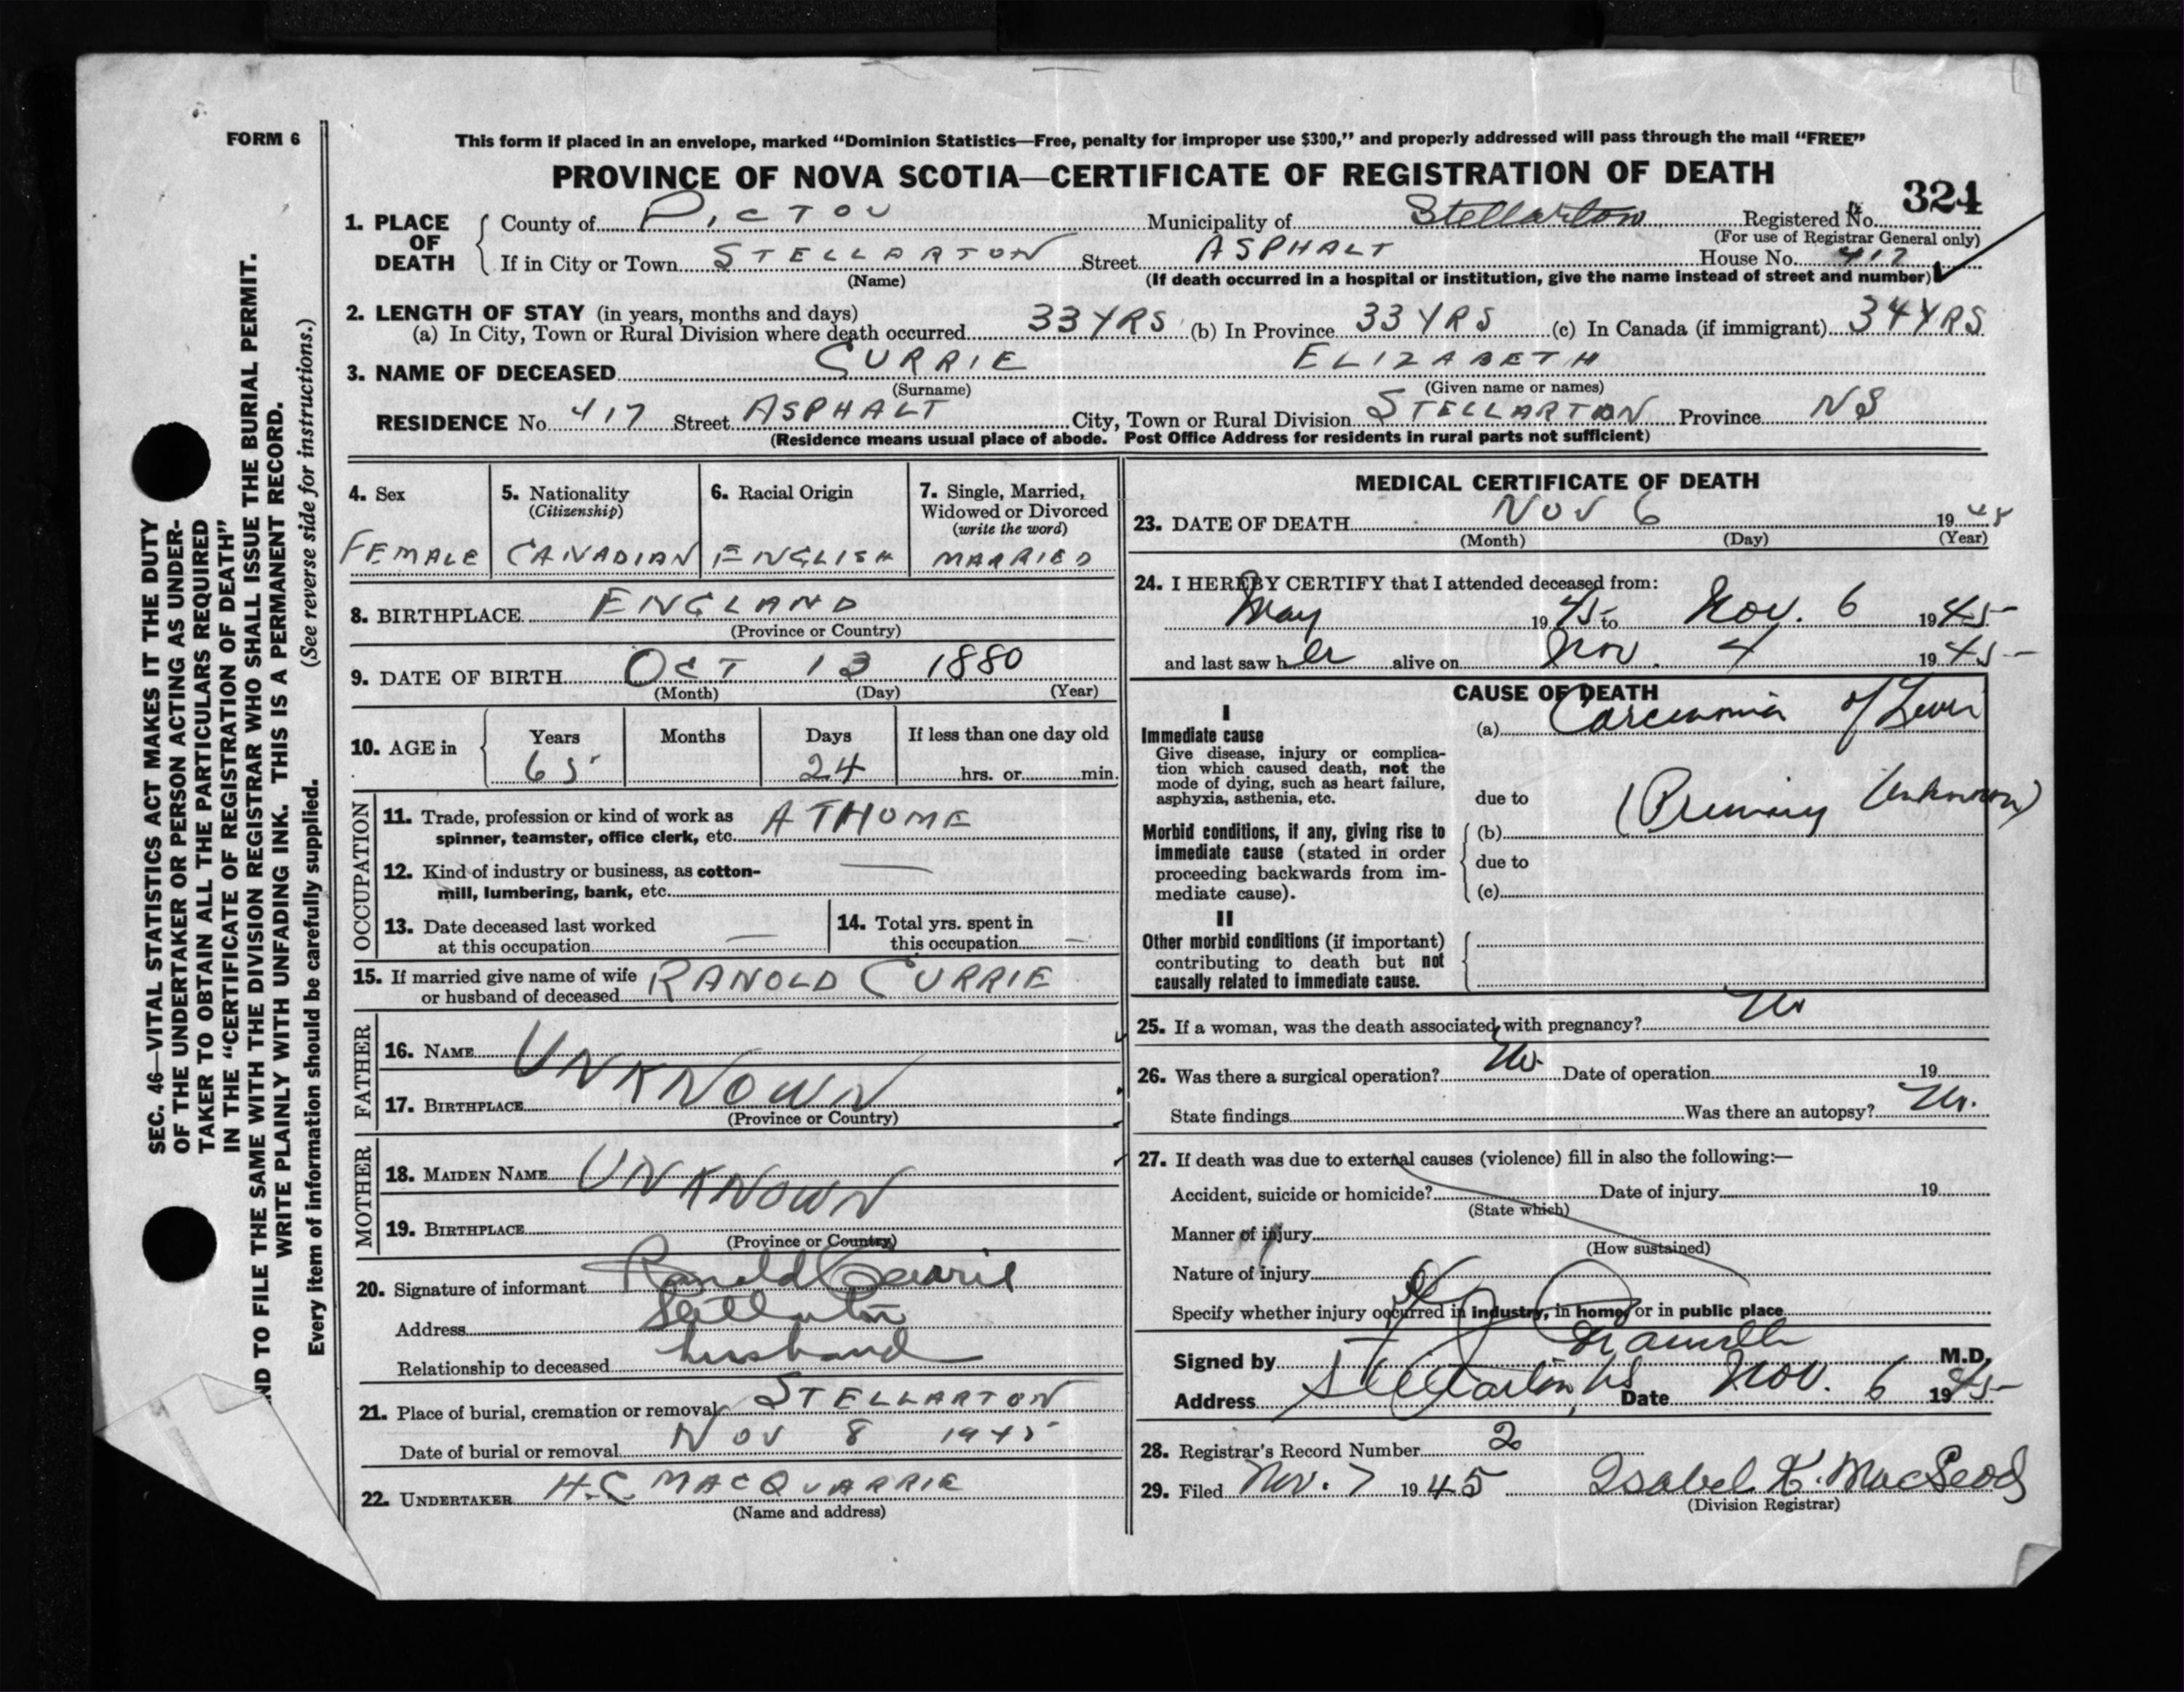 FORM 6
This form if placed in an envelope, marked “Dominion Statistics—Free, penalty for improper use $300,” and properly addressed will pass through the mail “FREE”
PROVINCE OF NOVA SCOTIA—CERTIFICATE OF REGISTRATION OF DEATH
324
1. PLACE OF DEATH County of PICTOU Municipality of Stellarton Registered No.
(For use of Registrar General only)
If in City or Town STELLARTON Street ASPHALT House No. 417
(Name) (If death occurred in a hospital or institution, give the name instead of street and number)
2. LENGTH OF STAY (in years, months and days)
(a) In City, Town or Rural Division where death occurred 33 YRS (b) In Province 33 YRS (c) In Canada (if immigrant) 34 YRS
3. NAME OF DECEASED CURRIE ELIZABETH
(Surname) (Given name or names)
RESIDENCE No. 417 Street ASPHALT City, Town or Rural Division STELLARTON Province NS
(Residence means usual place of abode. Post Office Address for residents in rural parts not sufficient)
4. Sex 5. Nationality (Citizenship) 6. Racial Origin 7. Single, Married, Widowed or Divorced (write the word)
FEMALE CANADIAN ENGLISH MARRIED
8. BIRTHPLACE ENGLAND
(Province or Country)
9. DATE OF BIRTH OCT 13 1880
(Month) (Day) (Year)
10. AGE in Years Months Days If less than one day old
65 24 hrs. or min.
OCCUPATION
11. Trade, profession or kind of work as
spinner, teamster, office clerk, etc. AT HOME
12. Kind of industry or business, as cotton-
mill, lumbering, bank, etc. —
13. Date deceased last worked
at this occupation —
14. Total yrs. spent in
this occupation —
15. If married give name of wife
or husband of deceased RANOLD CURRIE
FATHER
16. NAME UNKNOWN
17. BIRTHPLACE
(Province or Country)
MOTHER
18. MAIDEN NAME UNKNOWN
19. BIRTHPLACE
(Province or Country)
20. Signature of informant Ranold Currie
Address Stellarton
Relationship to deceased husband
21. Place of burial, cremation or removal STELLARTON
Date of burial or removal NOV 8 1945
22. UNDERTAKER H.C. MACQUARRIE
(Name and address)
MEDICAL CERTIFICATE OF DEATH
23. DATE OF DEATH NOV 6 1945
(Month) (Day) (Year)
24. I HEREBY CERTIFY that I attended deceased from:
May 1945 to Nov. 6 1945
and last saw her alive on Nov. 4 1945
CAUSE OF DEATH
I
Immediate cause
Give disease, injury or complica-
tion which caused death, not the
mode of dying, such as heart failure,
asphyxia, asthenia, etc.
(a) Carcinoma of Liver
due to
Morbid conditions, if any, giving rise to
immediate cause (stated in order
proceeding backwards from im-
mediate cause).
(b) (Primary Unknown)
due to
(c)
II
Other morbid conditions (if important)
contributing to death but not
causally related to immediate cause.
25. If a woman, was the death associated with pregnancy? No
26. Was there a surgical operation? No. Date of operation 19
State findings Was there an autopsy? No.
27. If death was due to external causes (violence) fill in also the following:—
Accident, suicide or homicide? Date of injury 19
(State which)
Manner of injury
(How sustained)
Nature of injury
Specify whether injury occurred in industry, in home, or in public place
Signed by M.D.
Address Stellarton, NS Date Nov. 6 1945
28. Registrar's Record Number 2
29. Filed Nov. 7 1945 Isabel K. MacLeod
(Division Registrar)
SEC. 46—VITAL STATISTICS ACT MAKES IT THE DUTY
OF THE UNDERTAKER OR PERSON ACTING AS UNDER-
TAKER TO OBTAIN ALL THE PARTICULARS REQUIRED
IN THE “CERTIFICATE OF REGISTRATION OF DEATH”
ND TO FILE THE SAME WITH THE DIVISION REGISTRAR WHO SHALL ISSUE THE BURIAL PERMIT.
WRITE PLAINLY WITH UNFADING INK. THIS IS A PERMANENT RECORD.
Every item of information should be carefully supplied. (See reverse side for instructions.)